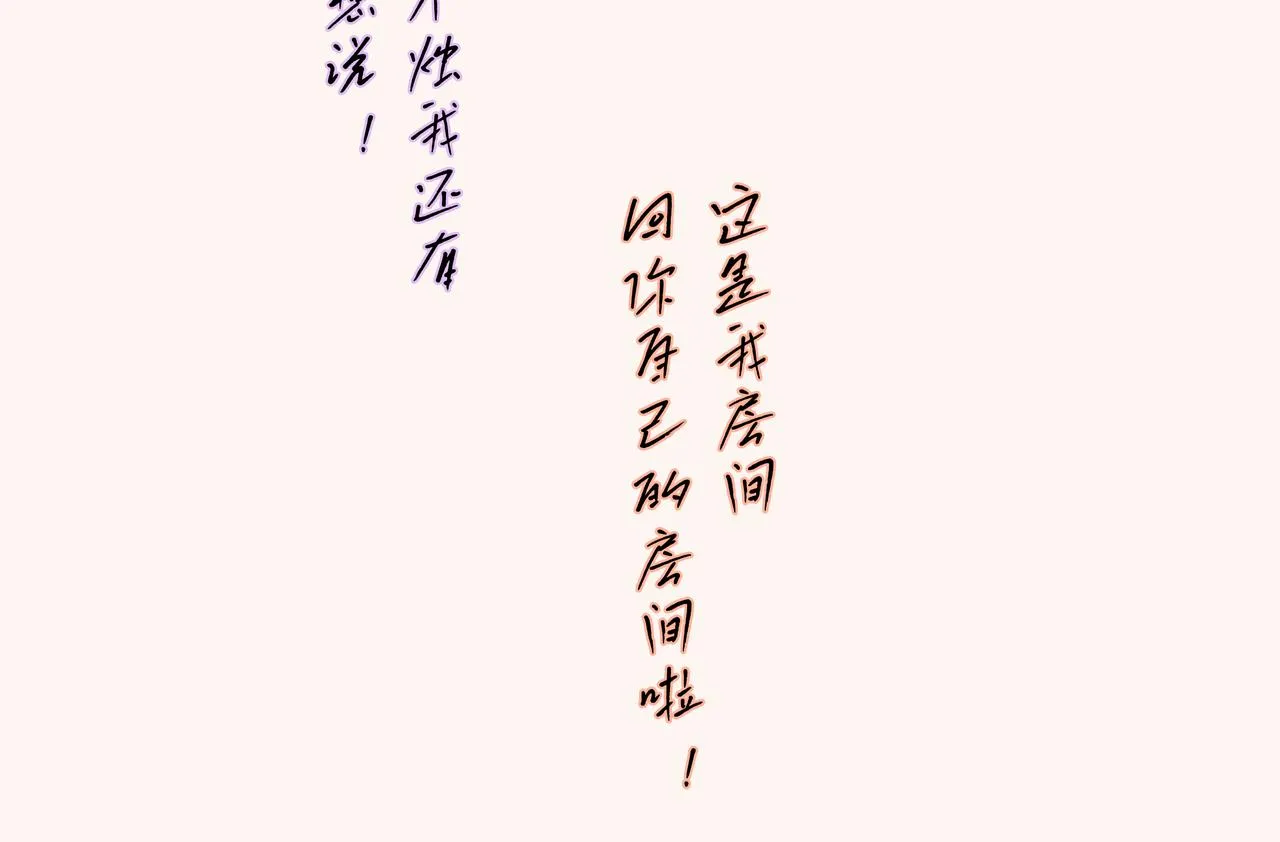 这是我房间
回你自己的房间啦！
烛我还有
想说！